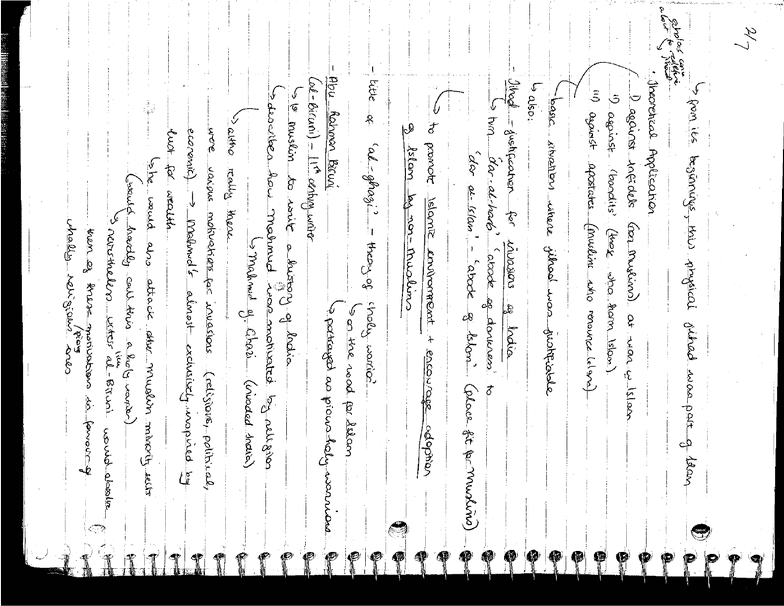 2/7
↳ from its beginnings, this physical jihad was part of Islam
scholar can
· Theoretical Application
i) against infidels (non Muslims) at war w Islam
ii) against 'bandits' (those who harm Islam)
iii) against apostates (muslims who renounce Islam)
basic situations where jihad was justifiable
↳ also:
- Jihad - justification for invasions of India
↳ turn 'dar-al-harb' 'abode of darkness' to
'dar al-islam' - 'abode of Islam' (place fit for Muslims)
↳ to promote Islamic environment + encourage adoption
of Islam by non-muslims
- title of 'al-ghazi' - theory of 'holy warrior'
↳ on the road for Islam
↳ portrayed as pious holy warriors
- Abu Rahman Biruni
(al-Biruni) - 11th century writer
↳ 1st muslim to write a history of India
↳ describes how Mahmud was motivated by religion
↳ Mahmud of Ghazi (invaded India)
↳ altho really there
were various motivations for invasions (religious, political,
economic) → Mahmud's almost exclusively inspired by
lust for wealth
↳ he would also attack other muslim minority sects
(would hardly call this a holy warrior)
↳ nonetheless writer like al-Biruni would
them of these motivations in favour of
wholly religious/pious ones